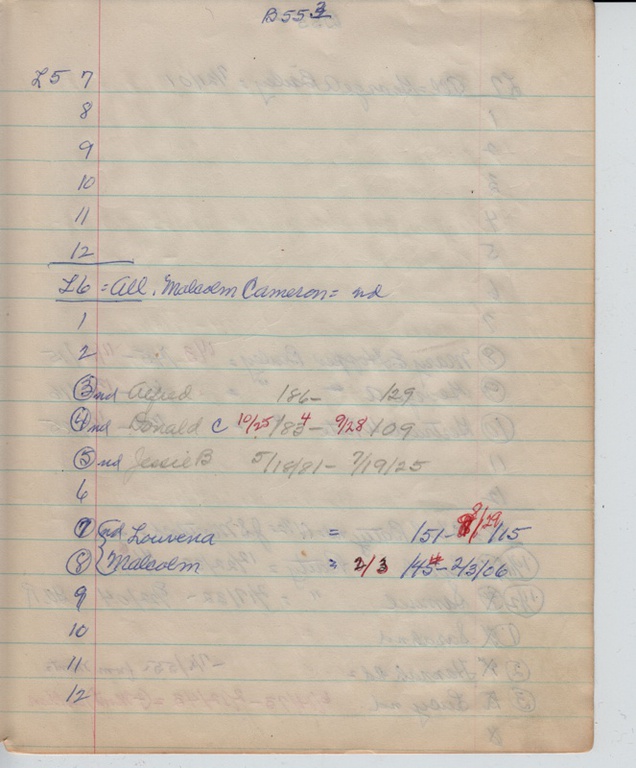 B553
L5 7
8
9
10
11
12
L6 = All. Malcolm Cameron = nd
1
2
3 nd Alfred /86- /29
4 nd Donald C 10/25 /834- 9/28 /09
5 nd Jessie B 5/18/81 - 7/19/25
6
7 nd Louvena = /51- 8/29/15
8 Malcolm = 2/3 /45- 2/3/06
9
10
11
12